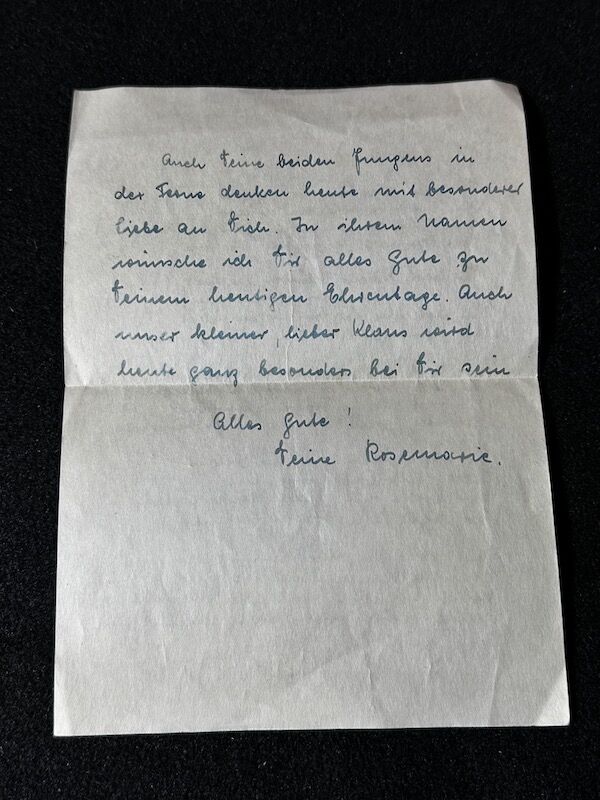 Auch Deine beiden Jungens in
der Ferne denken heute mit besonderer
Liebe an Dich. In ihrem Namen
wünsche ich Dir alles Gute zu
Deinem heutigen Ehrentage. Auch
unser kleiner, lieber Klaus wird
heute ganz besonders bei Dir sein
Alles Gute!
Deine Rosemarie.